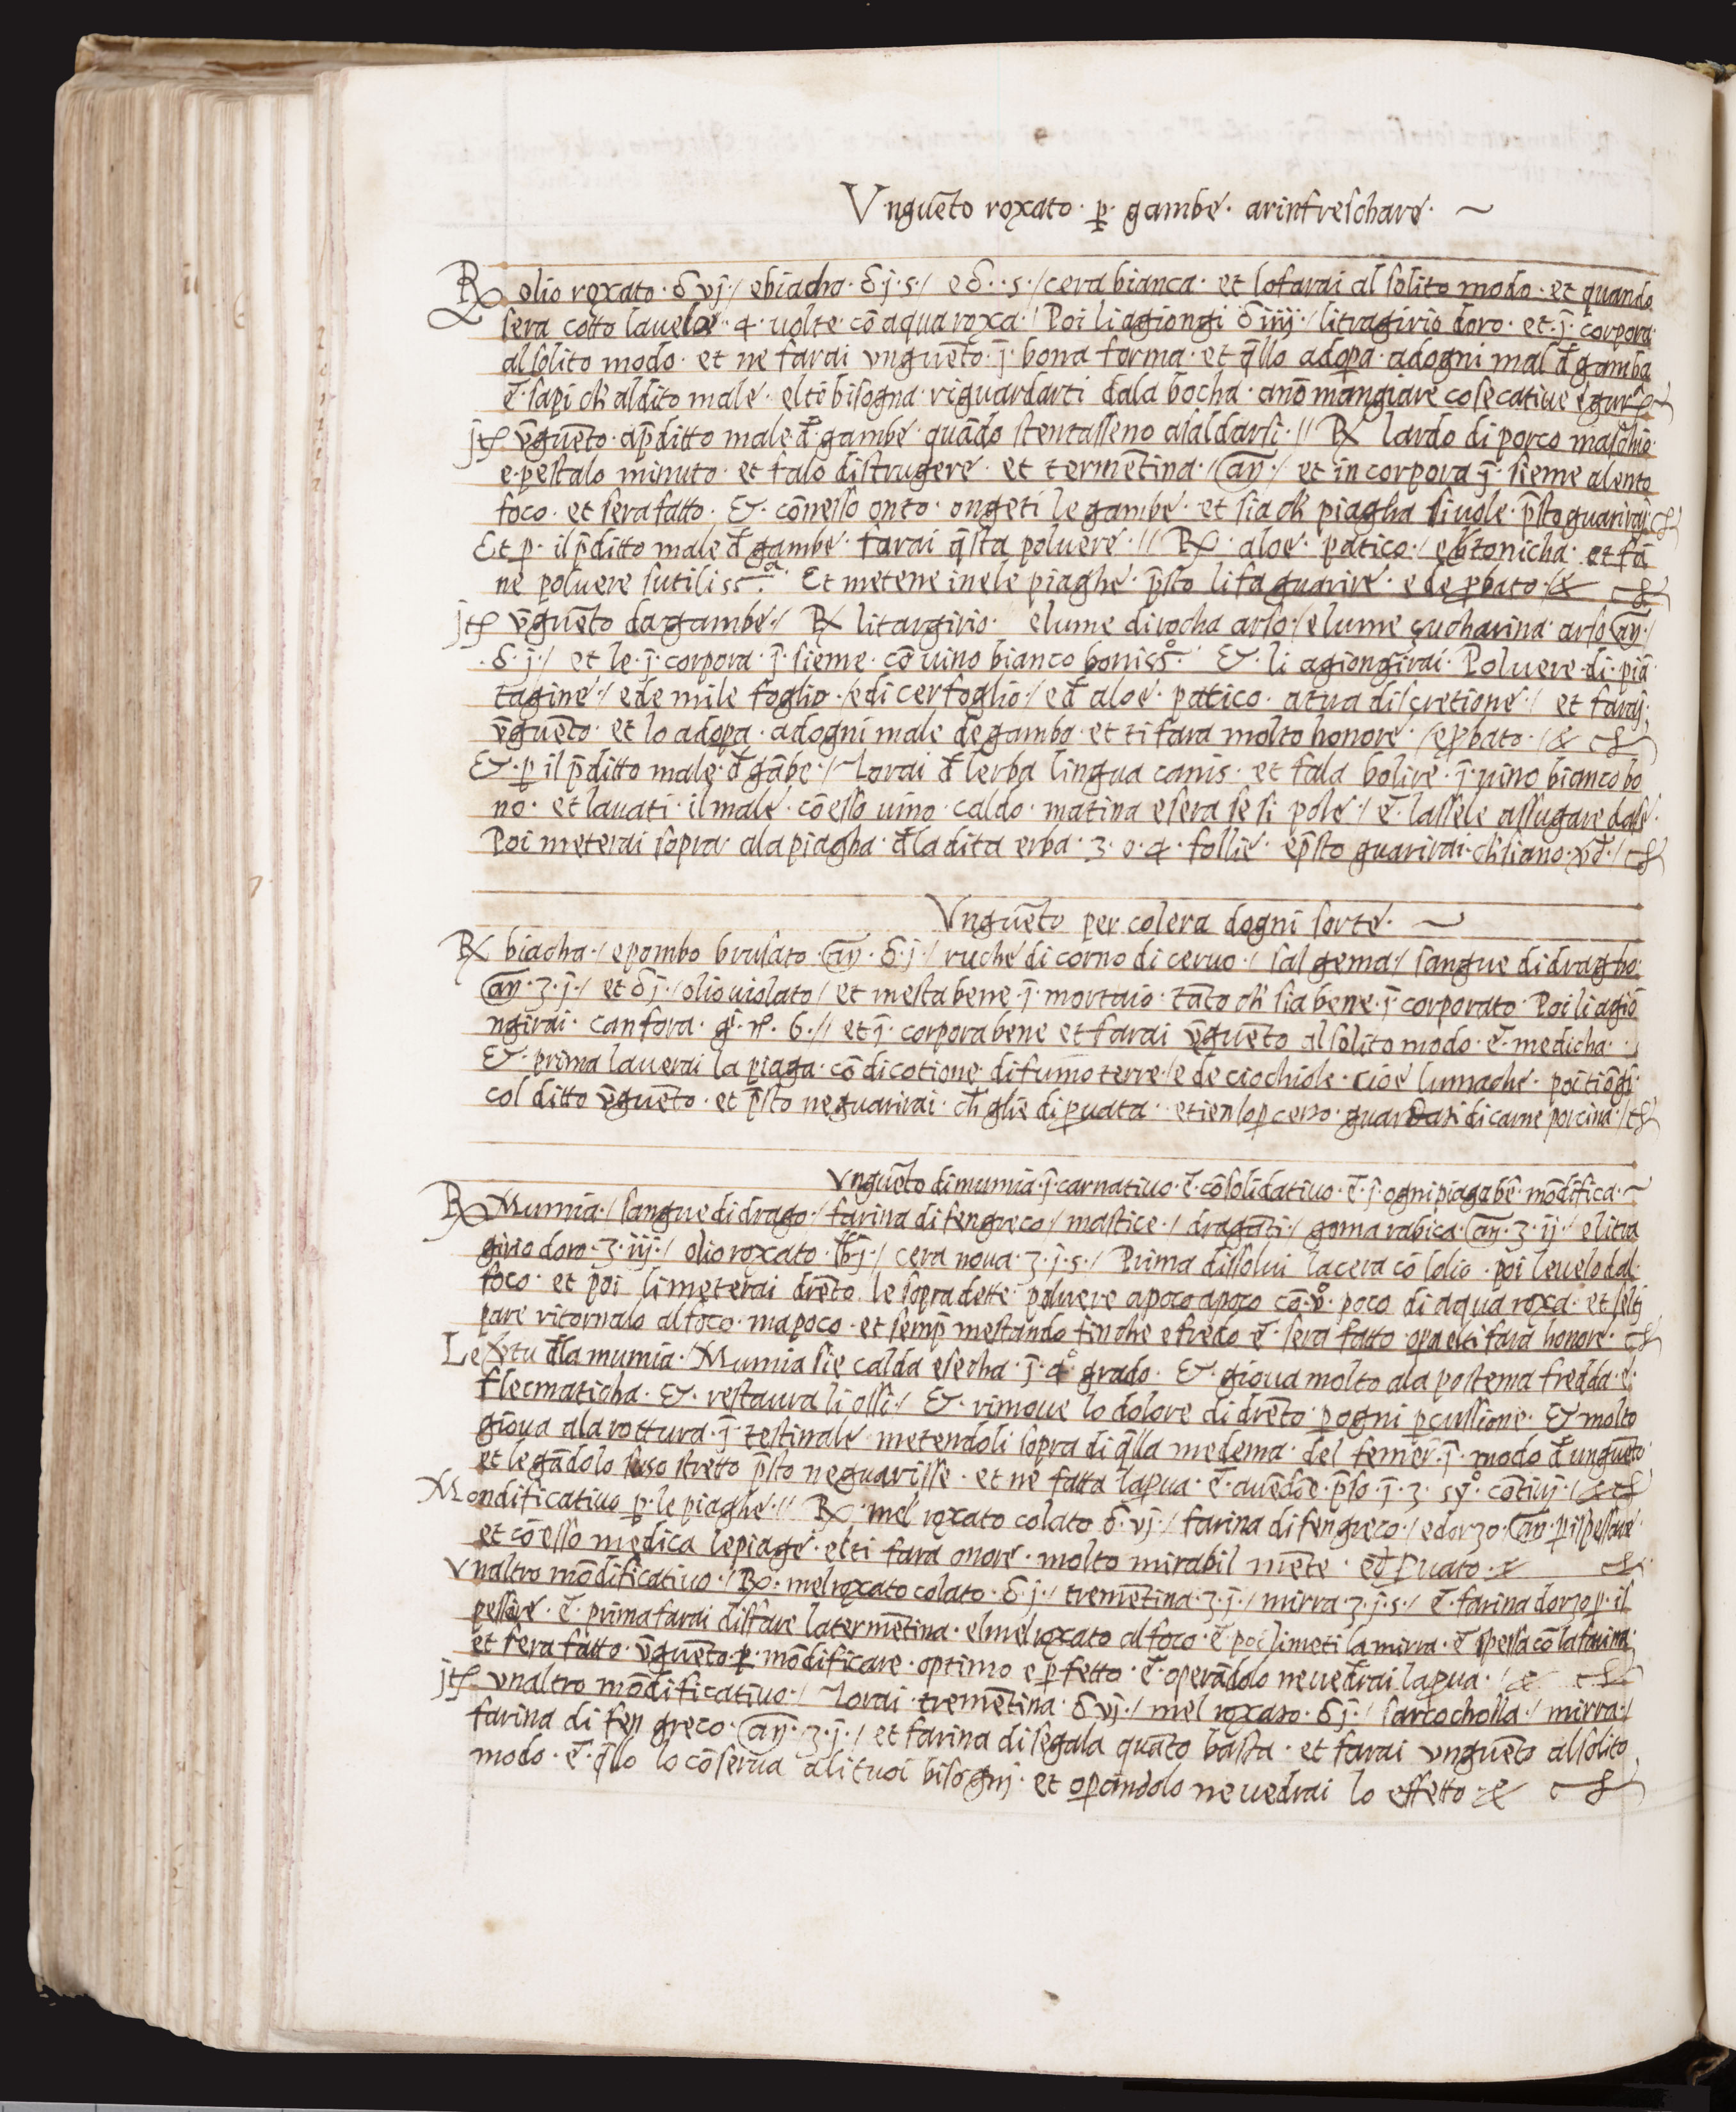 Vnguēto roxato · ꝑ · gambe · arinfreſchare · ~
℞ olio roxato · ʒ vj · / ebiacha · ʒ j · s · / e ʒ · s · / cera bianca · et lofarai al ſolito modo · et quando
ſera cotto lauelo · 4 · uolte cō aqua roxa · / Poi li agiongi ʒ iiij · / litragirio doro · et · ī · corpora ·
al ſolito modo · et ne farai vnguēto · ī · bona forma · et q̄llo adoꝑa · adogni mal đ gamba
ē · ſapi cħ aldito male · eltē biſogna · riguardarti dala bocha · anō mangiare coſe catiue
jtē v̄guēto · ap̄ditto male · đ · gambe · quādo ſtentaſſeno aſaldarſi · // ℞ lardo di porco maſchio ·
e · peſtalo minuto · et falo diſtrugere · et termētina · / añ · / et in corpora ī · ſieme alento
foco · et ſera fatto · & · cōneſſo onto · ongeti le gambe · et ſia cħ piagha ſi uole · p̄ſto guarirai ·
Et ꝑ · il p̄ditto male đ gambe · farai q̄ſta poluere · // ℞ · aloe · patico · / ebtonicha · et fā
ne poluere ſutiliss.ª Et metene inele piaghe · p̄ſto li fa guarire · e de ꝓbato · / &
jtē v̄guēto da gambe · / ℞ litargirio · elume di rocha arſo · / elume çucharina · arſo añ · /
· ʒ · j · / et le · ī · corpora · ī · ſieme · cō uino bianco boniss.º & · li agiongirai · Poluere · di · piā
tagine · / ede mile foglio · / edi cerfoglio · / eđ aloe · patico · atua diſcretione · / et farai ·
v̄guēto · et lo adoꝑa · adogni male de gamba · et ti fara molto honore · / eꝓbato · / &
& · ꝑ il p̄ditto male · đ gābe · / Torai đ lerba lingua canis · et fala bolire · ī · uino bianco bo
no · et lauati · il male · cō eſſo uino · caldo · matina eſera ſe ſi pole · / ē · laſſele aſſugare daſe ·
Poi meterai ſopra · ala piagha · đla dita erba · 3 · o · 4 · follie · ep̄ſto guarirai · cħ ſiano · vđ · /
Vnguēto per colera dogni ſorte · ~
℞ biacha · / epombo bruſato · añ · ʒ · j · / ruche di corno di ceruo · / ſal gema · / ſangue di dragho ·
añ · ʒ · j · / et ʒ j · / olio uiolato / et meſta bene · ī · mortaio · tāto cħ ſia bene · ī · corporato · Poi li agiō
ngirai · canfora · g̃ · nº · 6 · // et ī · corpora bene et farai v̄guēto al ſolito modo · ē · medicha ·
& · prima lauerai la piaga · cō dicotione di fumo terre · / e de ciochiole · cioe lumache · poi tiōgi ·
col ditto v̄guēto · et p̄ſto ne guarirai · cħ gliē di ꝑuata · etienlo ꝑ cerro · guardati di carne porcina · /
vnguēto di mumia · ī · carnatiuo · ē · cōſolidatiuo · ē · ī · ogni piaga bē · mōdifica · ~
℞ Mumia · / ſangue di drago · / farina di fengreco · / maſtice · / dragāti · / goma rabica · añ · ʒ · ij · / e litra
girio doro · ʒ · iij · / olio roxato · ℔ j · / cera noua · ʒ · j · s · / Prima diſſolui la cera cō lolio · poi leuelo dal ·
foco · et poi li meterai drēto · le ſopradette poluere apoco apoco cō · vº · poco di aqua roxa · et ſelti
pare ritornalo al foco · ma poco · et ſemp̄ meſtando finche efredo ē · ſera fatto · oꝑa elti fara honore ·
Le v̄tu đla mumia · / Mumia ſie calda eſecha · ī · 4º grado · & · gioua molto ala poſtema fredda · ē ·
flecmaticha · & · reſtaura li oſſi · / & · rimoue lo dolore di drēto · ꝑ ogni ꝑcuſſione · & molto
gioua ala rottura · ī · teſtinale · metendoli ſopra di q̄lla medema · del femer · ī · modo đ unguēto ·
et legādolo ſuſo ſtretto p̄ſto ne guariſſe · et ne fatta la ꝑua · ē ·
Mondificatiuo ꝑ · le piaghe · // ℞ · mel roxato colato ʒ · vj · / farina di fengreco · / edorzo · añ · ꝑ iſpeſſare ·
et cō eſſo medica le piage · elti fara onore · molto mirabil mēte · eđ ꝑuato · &
vnaltro mōdificatiuo · / ℞ · mel roxato colato · ʒ · j · / tremētina · ʒ · j · / mirra · ʒ · j · s · / ē · farina dorzo ꝑ · iſ
peſſire · ē · prima farai diſfare la termētina · elmel roxato al foco · ē · poi li meti la mirra · ē ſpeſſa cō la farina ·
et ſera fatto · v̄guēto · ꝑ · mōdificare · optimo e ꝑfetto · ē · operādolo ne uedrai la ꝑua · / &
jtē vnaltro mōdificatiuo · / Torai · tremētina ʒ vj · / mel roxato · ʒ j · / ſartocholla · / mirra · /
farina di fen greco · añ · ʒ · j · / et farina di ſegala quāto baſta · et farai vnguēto al ſolito
modo · ē · q̄llo lo cōſerua ali tuoi biſogni · et oꝑandolo ne uedrai lo effetto · &